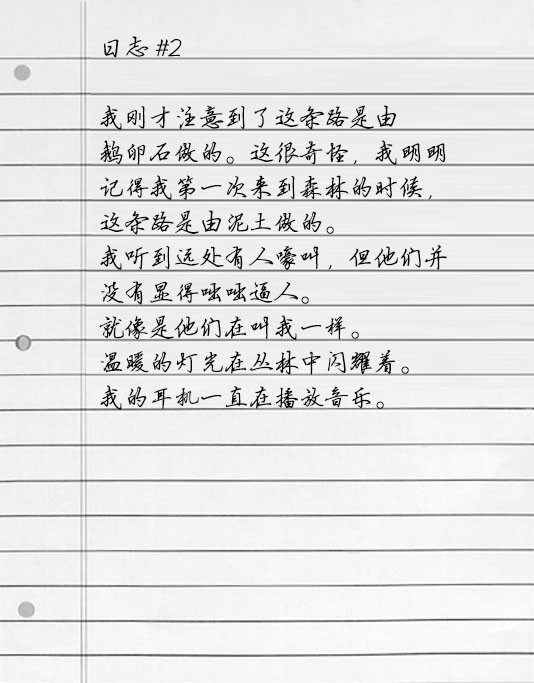 日志 #2
我刚才注意到了这条路是由
鹅卵石做的。这很奇怪，我明明
记得我第一次来到森林的时候，
这条路是由泥土做的。
我听到远处有人嚎叫，但他们并
没有显得咄咄逼人。
就像是他们在叫我一样。
温暖的灯光在丛林中闪耀着。
我的耳机一直在播放音乐。